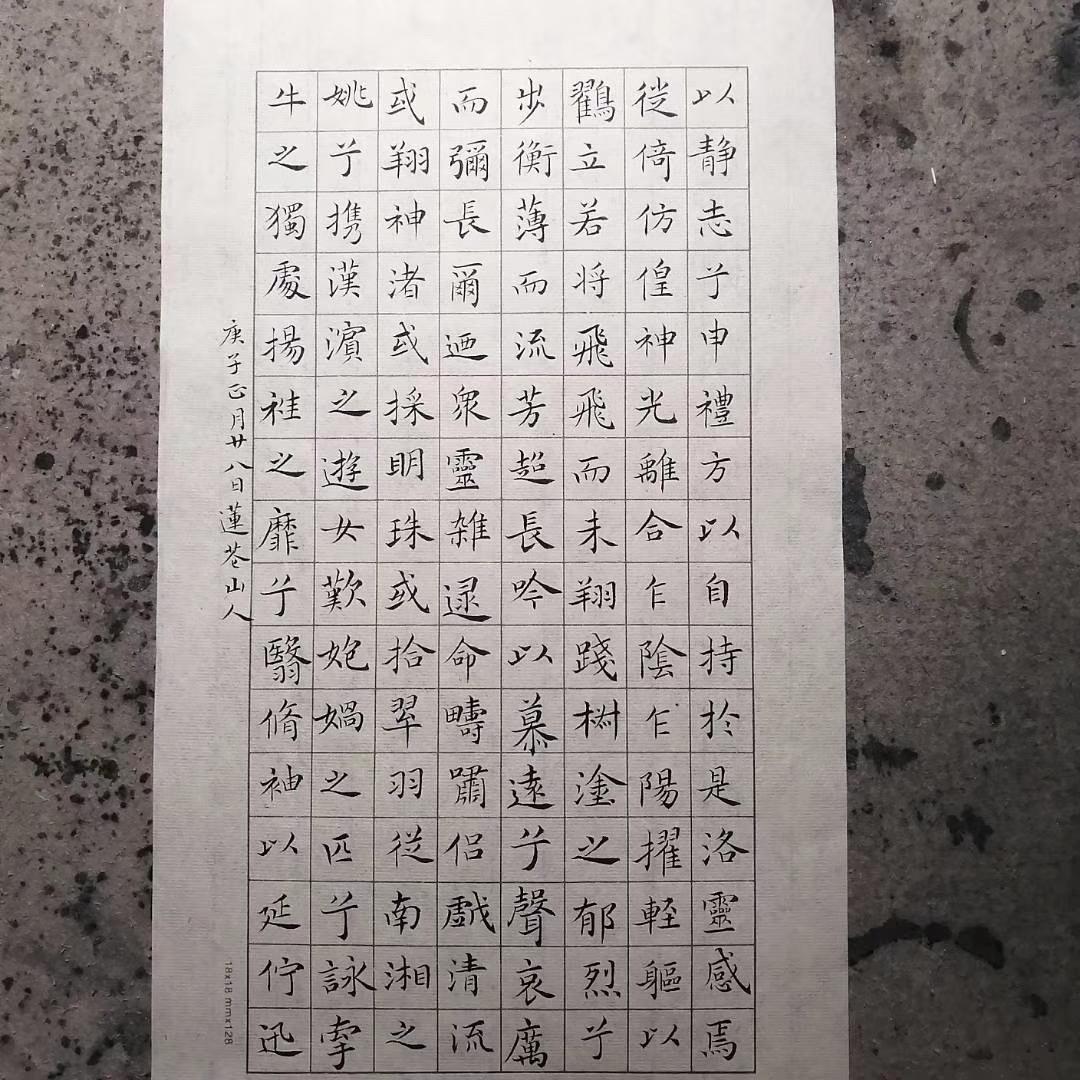 以静志兮申禮方以自持於是洛靈感焉
徙倚仿偟神光離合乍陰乍陽擢軽軀以
鸖立若将飛飛而未翔踐椒塗之郁烈兮
步衡薄而流芳超長吟以慕遠兮聲哀厲
而彌長爾迺衆靈雜遝命疇嘯侣戲清流
或翔神渚或採明珠或拾翠羽従南湘之
姚兮携漢濱之遊女歎㚿媧之匹兮詠牽
牛之獨處揚袿之靡兮翳脩袖以延佇迅
庚子正月廿八日蓮苍山人
18x18 mmx128